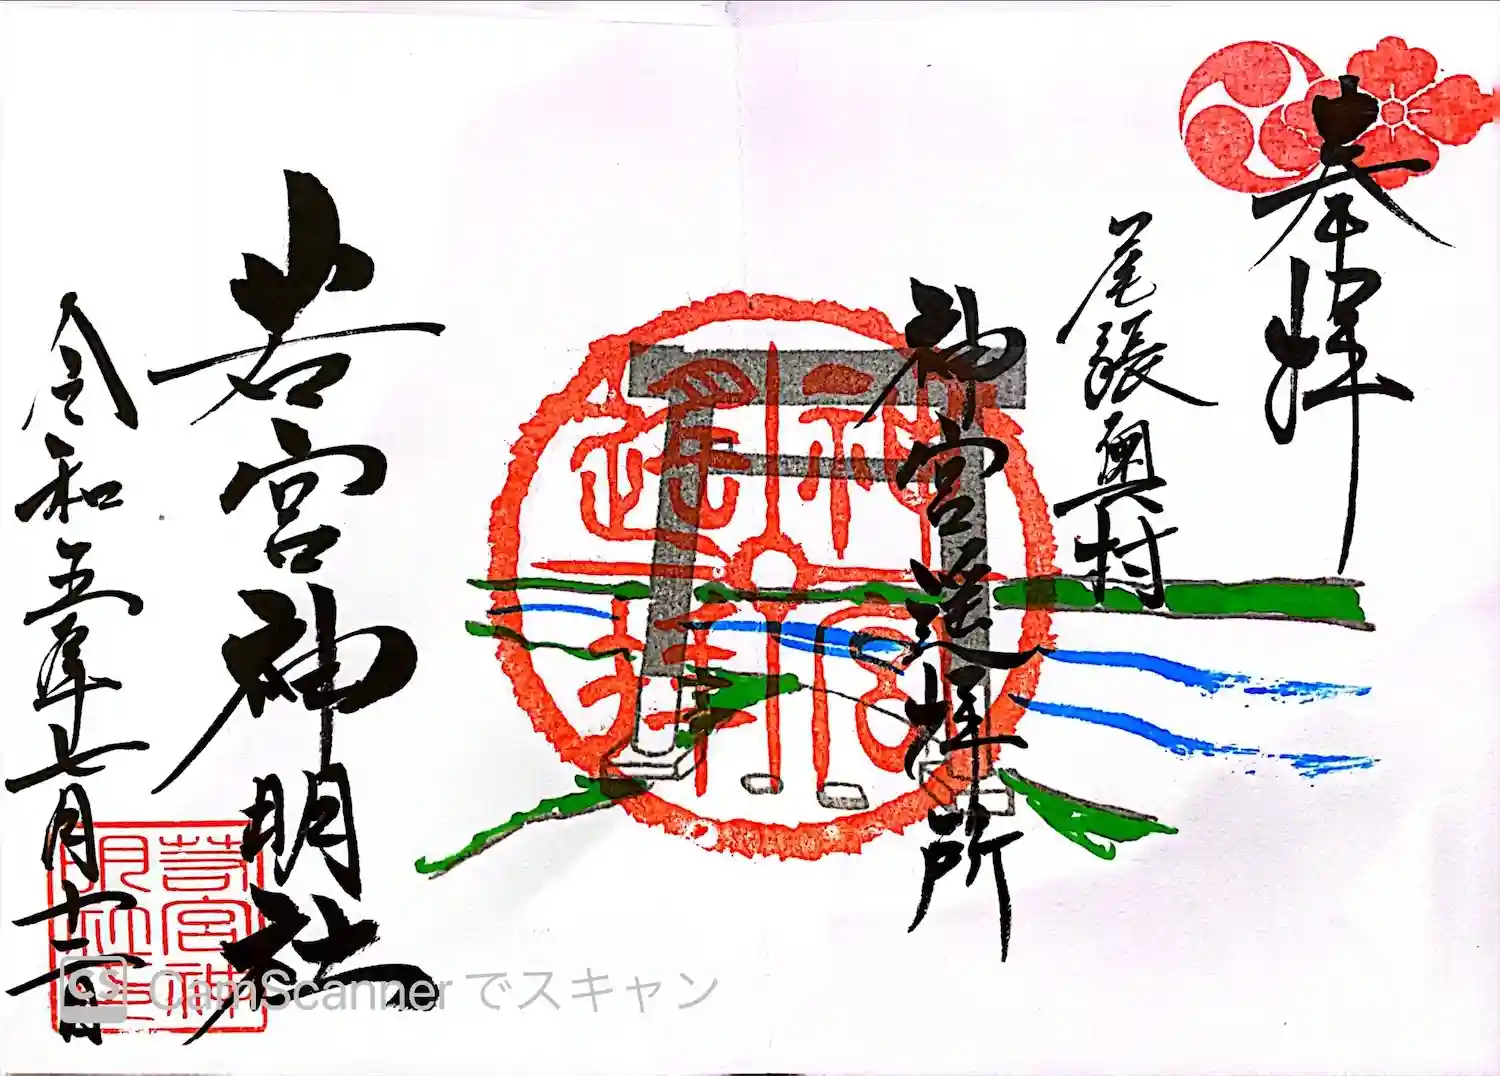 奉拝
尾張奥村
神宮遥拝所
神宮
遥拝
若宮神明社
令和五年七月十二日
若宮神
明社
CS CamScannerでスキャン